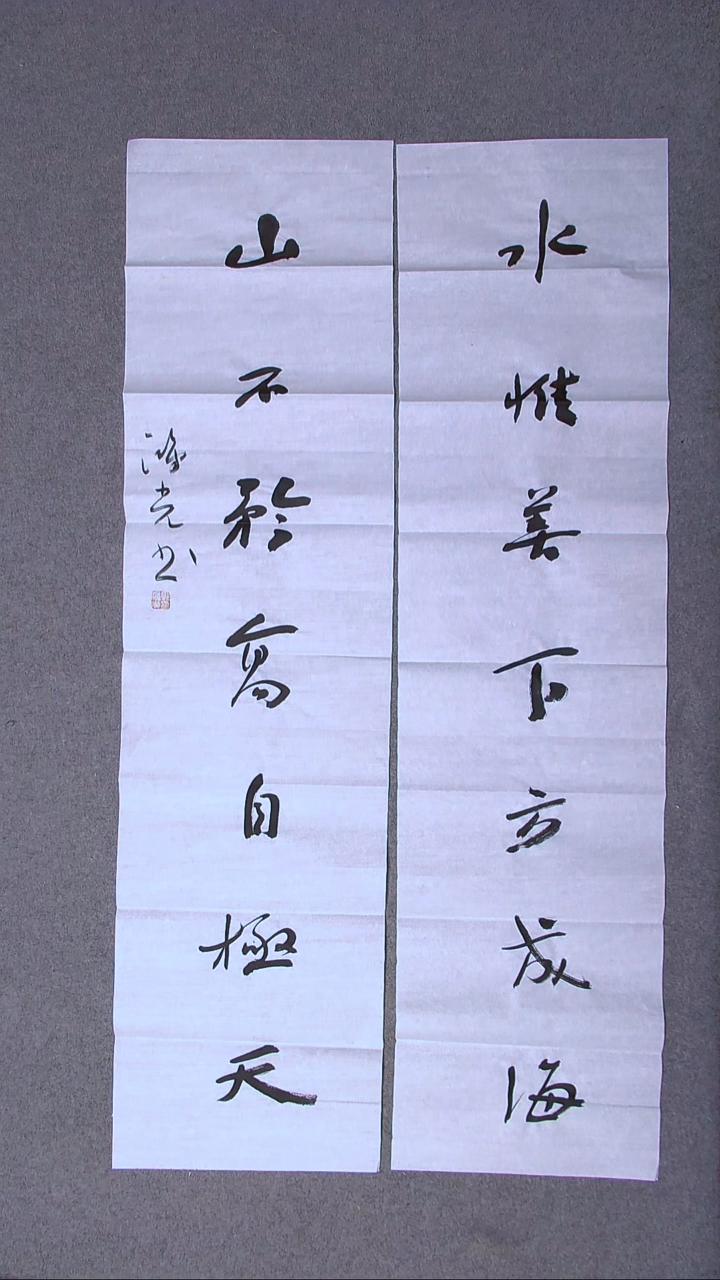 水惟善下方成海
山不矜高自極天
鴻光书